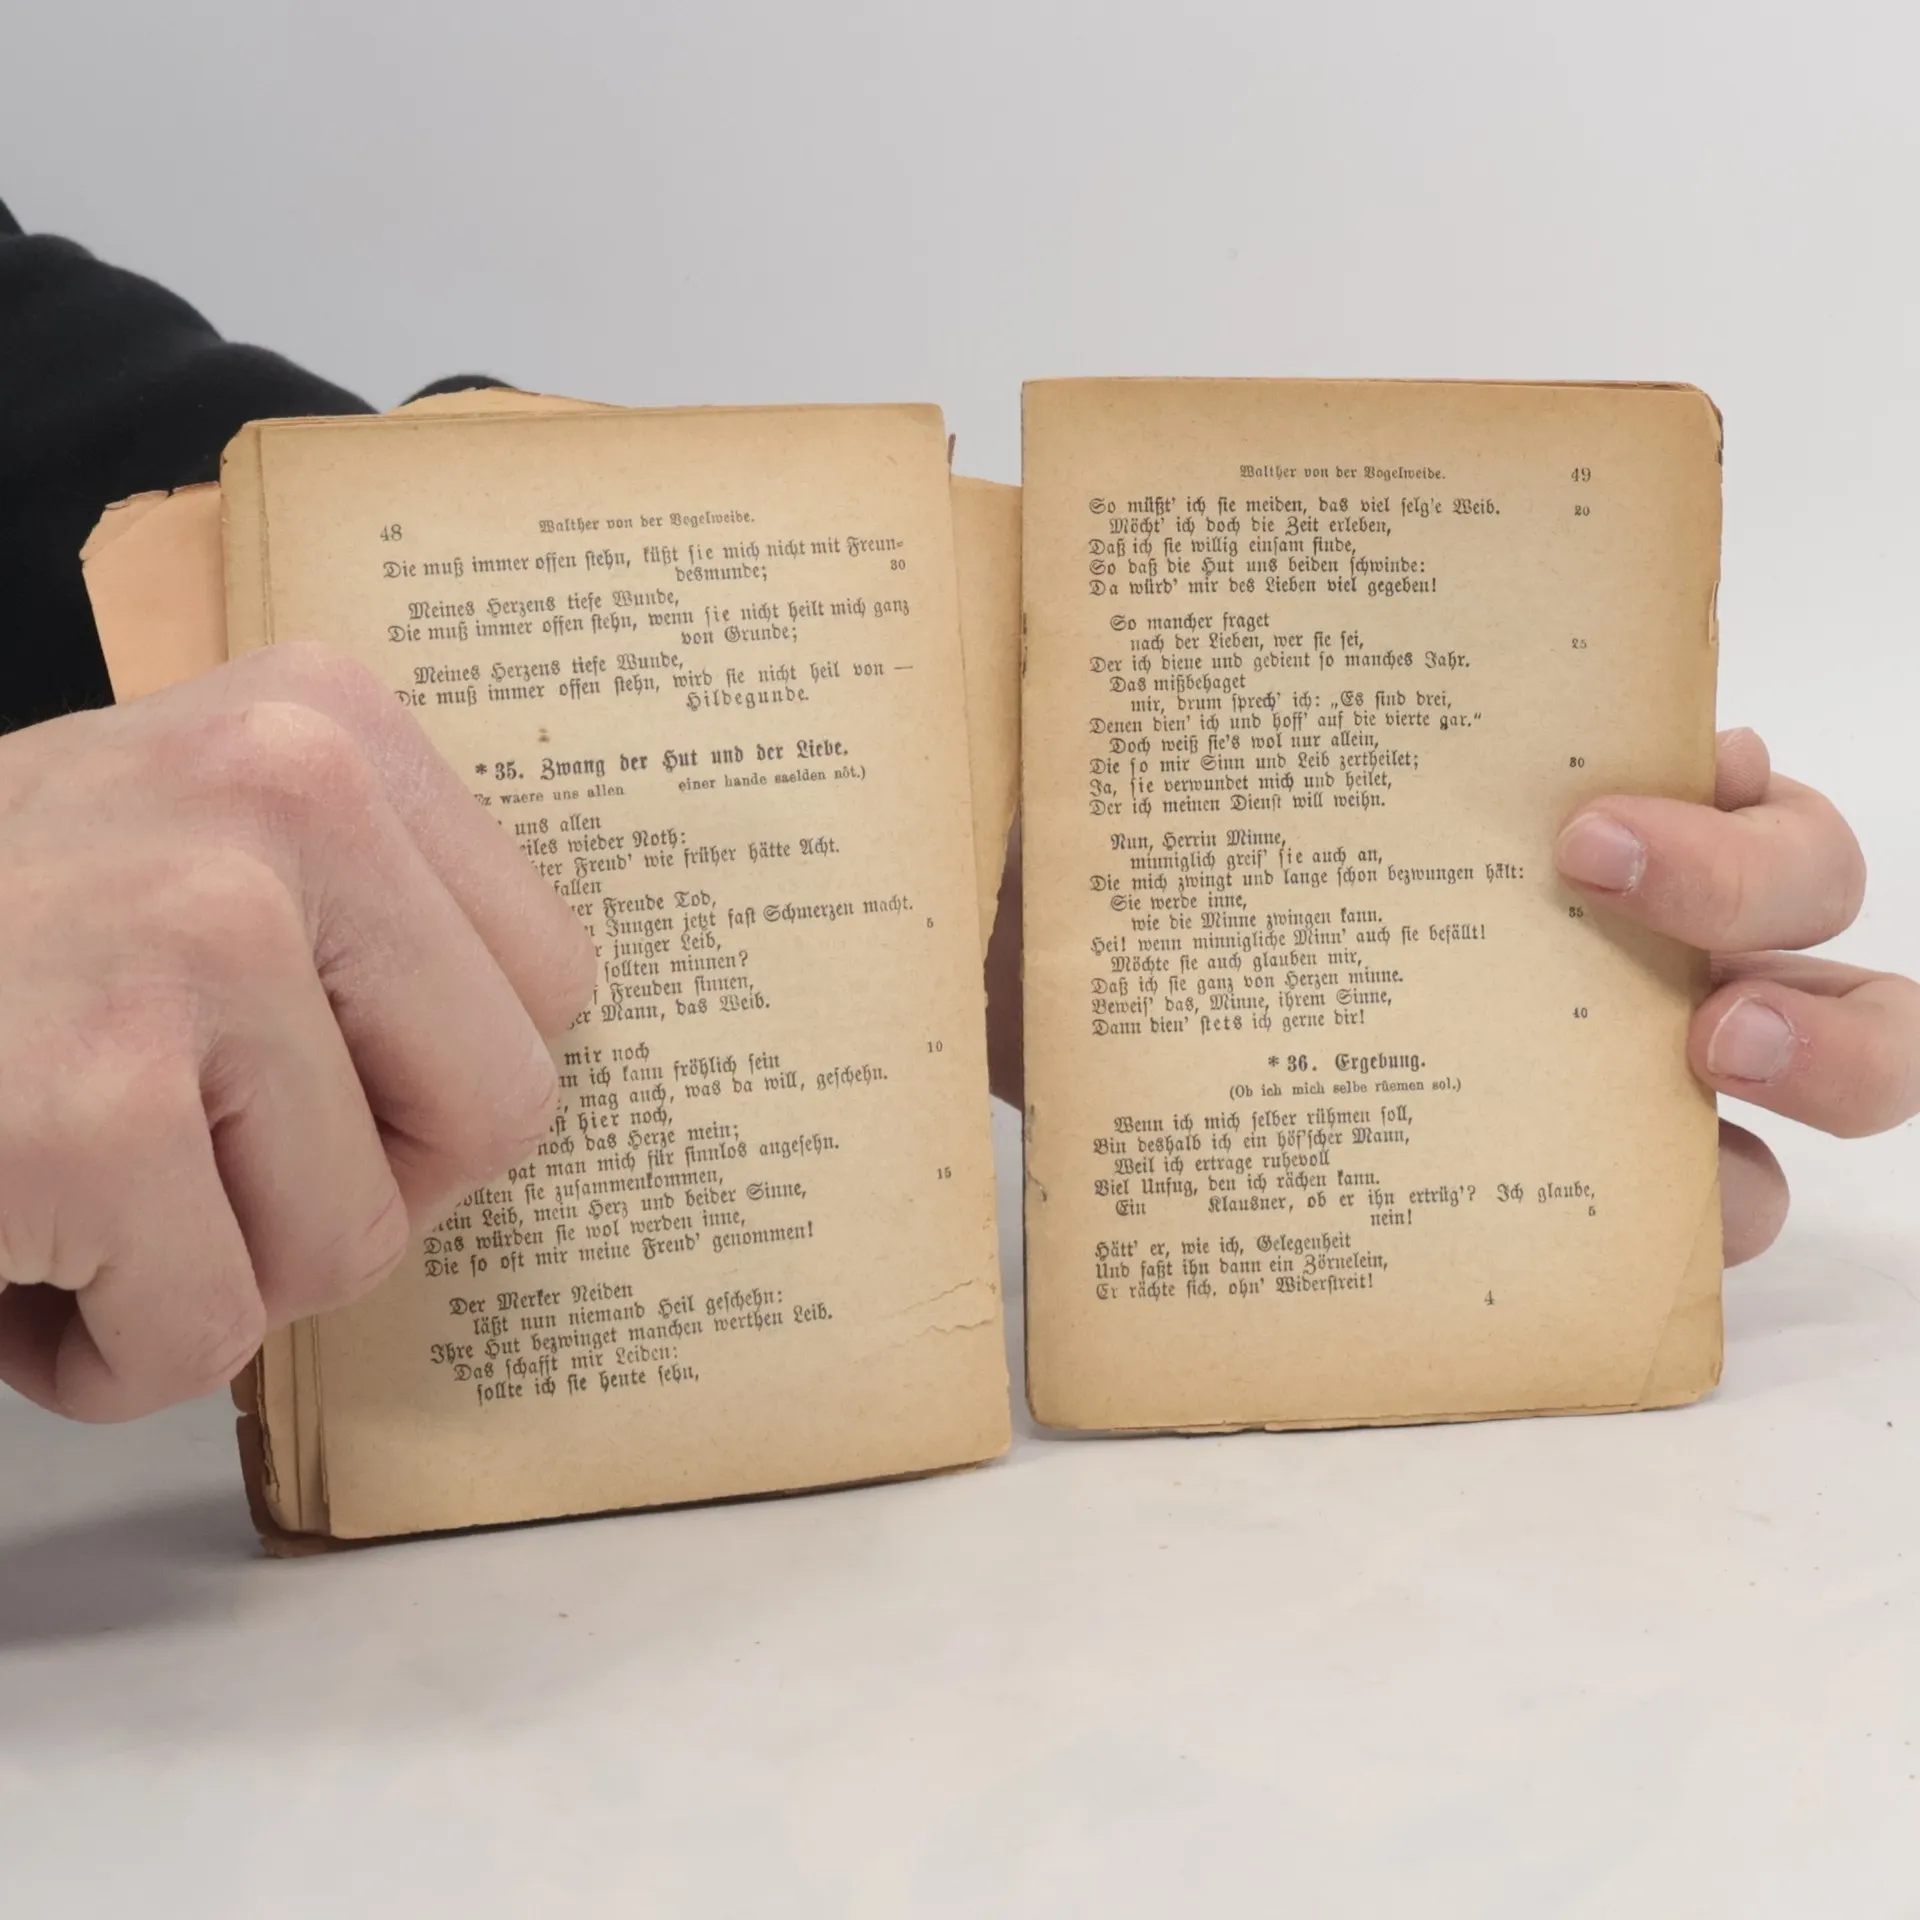 48 Walther von der Vogelweide.
Die muß immer offen stehn, küßt sie mich nicht mit Freun-
desmunde; 30
Meines Herzens tiefe Wunde,
Die muß immer offen stehn, wenn sie nicht heilt mich ganz
von Grunde;
Meines Herzens tiefe Wunde,
Die muß immer offen stehn, wird sie nicht heil von —
Hildegunde.
* 35. Zwang der Hut und der Liebe.
waere uns allen einer hande saelden nôt.)
uns allen
wieder Noth:
Freud' wie früher hätte Acht.
Freude Tod,
Jungen jetzt fast Schmerzen macht.
junger Leib, 5
sollten minnen?
Freuden sinnen,
Mann, das Weib.
mir noch
ich kann fröhlich sein 10
mag auch, was da will, geschehn.
hier noch,
noch das Herze mein;
man mich für sinnlos angesehn.
sie zusammenkommen,
Leib, mein Herz und beider Sinne, 15
Das würden sie wol werden inne,
Die so oft mir meine Freud' genommen!
Der Merker Neiden
läßt nun niemand Heil geschehn:
Ihre Hut bezwinget manchen werthen Leib.
Das schafft mir Leiden:
sollte ich sie heute sehn,
Walther von der Vogelweide. 49
So müßt' ich sie meiden, das viel selg'e Weib. 20
Möcht' ich doch die Zeit erleben,
Daß ich sie willig einsam finde,
So daß die Hut uns beiden schwinde:
Da würd' mir des Lieben viel gegeben!
So mancher fraget
nach der Lieben, wer sie sei, 25
Der ich diene und gedient so manches Jahr.
Das mißbehaget
mir, drum sprech' ich: „Es sind drei,
Denen dien' ich und hoff' auf die vierte gar.“
Doch weiß sie's wol nur allein,
Die so mir Sinn und Leib zertheilet; 30
Ja, sie verwundet mich und heilet,
Der ich meinen Dienst will weihn.
Nun, Herrin Minne,
minniglich greif' sie auch an,
Die mich zwingt und lange schon bezwungen hält:
Sie werde inne,
wie die Minne zwingen kann. 35
Hei! wenn minnigliche Minn' auch sie befällt!
Möchte sie auch glauben mir,
Daß ich sie ganz von Herzen minne.
Beweis' das, Minne, ihrem Sinne,
Dann dien' stets ich gerne dir! 40
* 36. Ergebung.
(Ob ich mich selbe rüemen sol.)
Wenn ich mich selber rühmen soll,
Bin deshalb ich ein höf'scher Mann,
Weil ich ertrage ruhevoll
Viel Unfug, den ich rächen kann.
Ein Klausner, ob er ihn ertrüg'? Ich glaube,
nein! 5
Hätt' er, wie ich, Gelegenheit
Und faßt ihn dann ein Zörnelein,
Er rächte sich, ohn' Widerstreit!
4